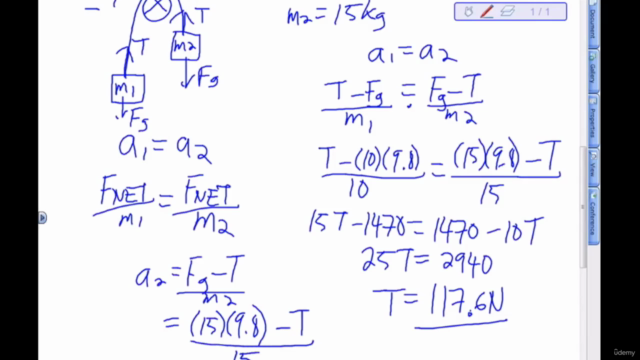 T
T
m2
m1
Fg
Fg
a1 = a2
FNET/m1 = FNET/m2
a2 = Fg - T/m2
= (15)(9.8) - T/15
m2 = 15kg
a1 = a2
T - Fg/m1 = Fg - T/m2
T - (10)(9.8)/10 = (15)(9.8) - T/15
15T - 1470 = 1470 - 10T
25T = 2940
T = 117.6N
1/1
Document
Gallery
Properties
Conference
ûdemy